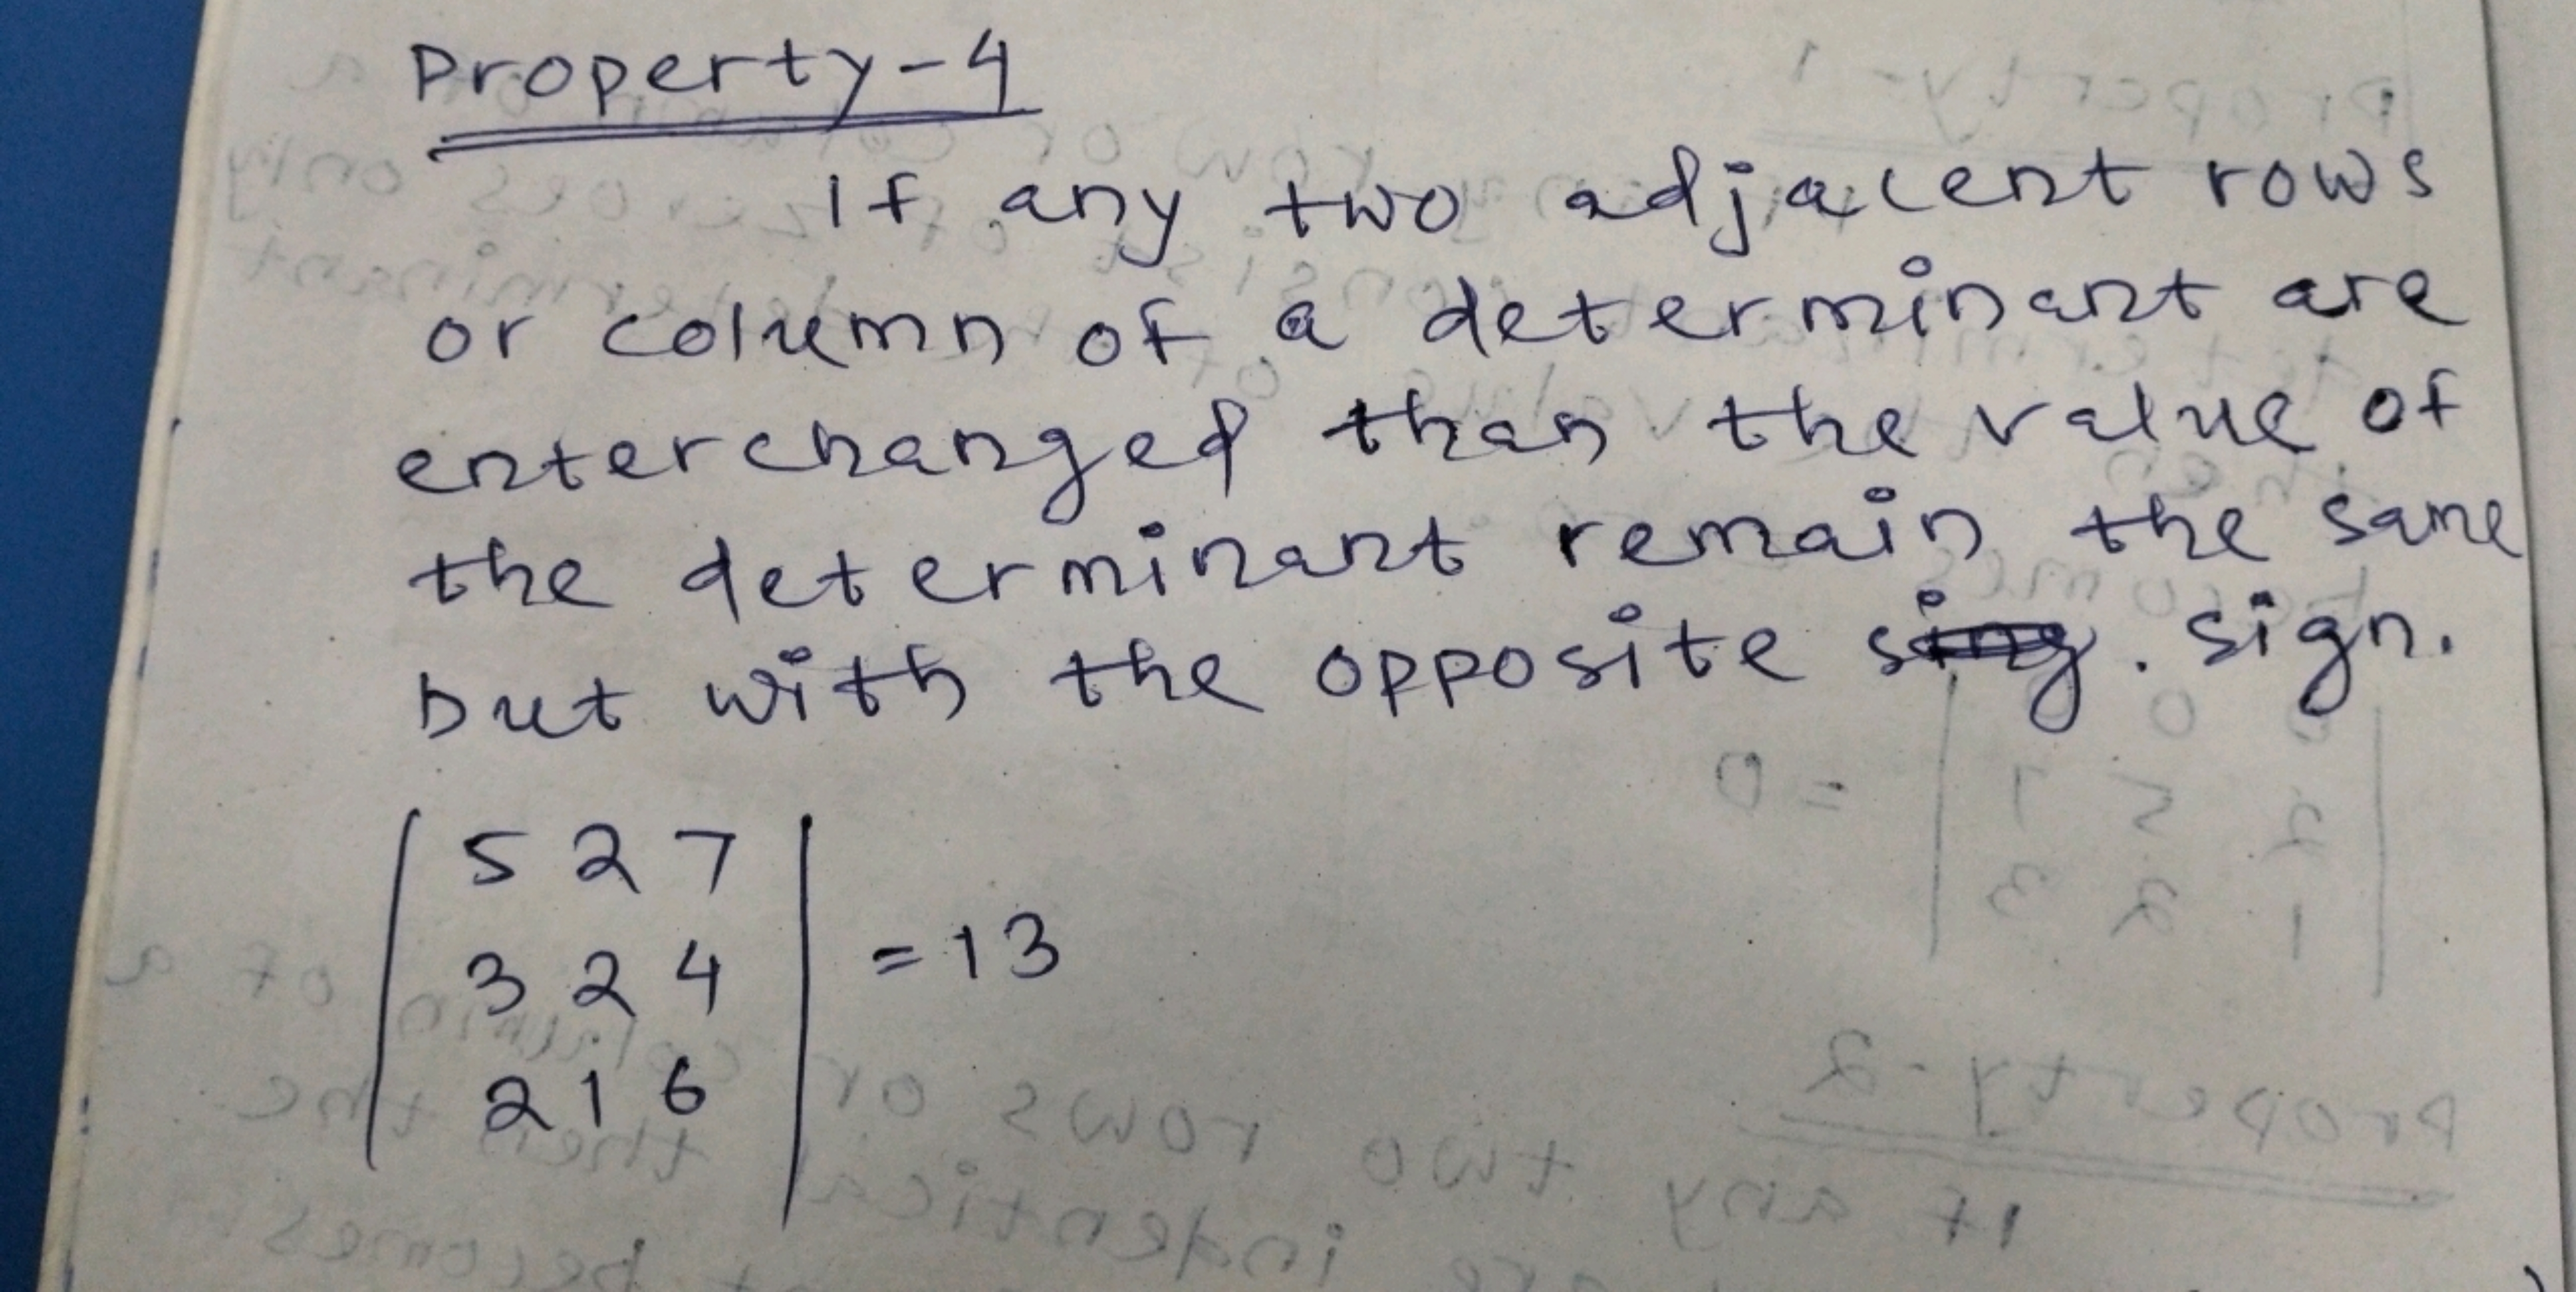 Property-4
If any two adjacent rows
or column of a determinant are
enterchanged than the value of
the determinant remain the same
but with the opposite . sign.
5 2 7
3 2 4 = 13
2 1 6